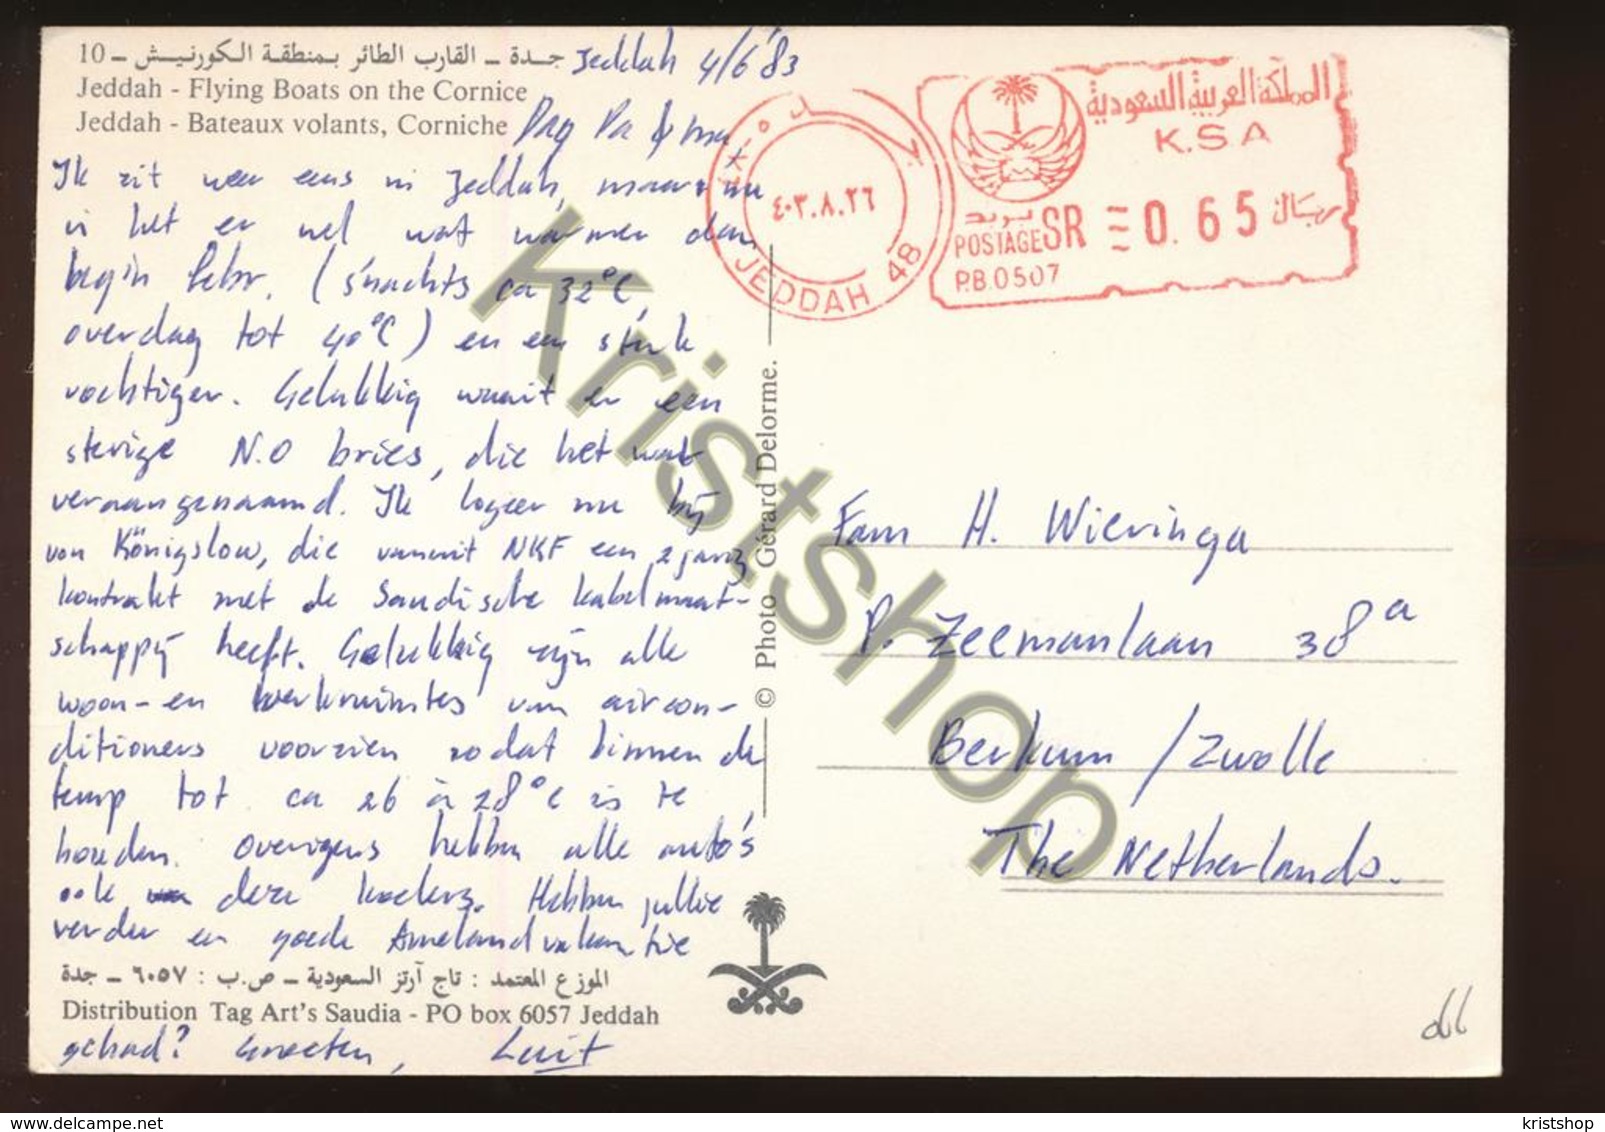 10 – جدة – القارب الطائر بمنطقة الكورنيش
Jeddah - Flying Boats on the Cornice
Jeddah - Bateaux volants, Corniche
Jeddah 4/6 '83
Dag Pa & ma,
Ik zit weer eens in Jeddah, maar nu
is het er wel wat warmer dan
begin febr. (s'nachts ca 32°C,
overdag tot 40°C) en een stuk
vochtiger. Gelukkig waait er een
stevige N.O bries, die het wat
veraangenaamd. Ik logeer nu bij
von Königslow, die vanuit NKF een 2 jarig
kontrakt met de Saudische kabelmaat-
schappij heeft. Gelukkig zijn alle
woon- en werkruimtes van aircon-
ditioners voorzien zodat binnen de
temp tot ca 26 à 28°C is te
houden. Overigens hebben alle auto's
ook deze koelers. Hebben jullie
verder een goede Amelandvakantie
gehad? Groeten, Luit
الموزع المعتمد : تاج آرتز السعودية – ص.ب : ٦٠٥٧ – جدة
Distribution Tag Art's Saudia - PO box 6057 Jeddah
© Photo Gérard Delorme.
٤٠٣.٨.٢٦
JEDDAH 48
المملكة العربية السعودية
K.S.A
بريد
POSTAGE SR 0.65 ريال
P.B.0507
Fam H. Wieringa
P. Zeemanlaan 38a
Berkum / Zwolle
The Netherlands.
Kristshop
delcampe.net
kristshop